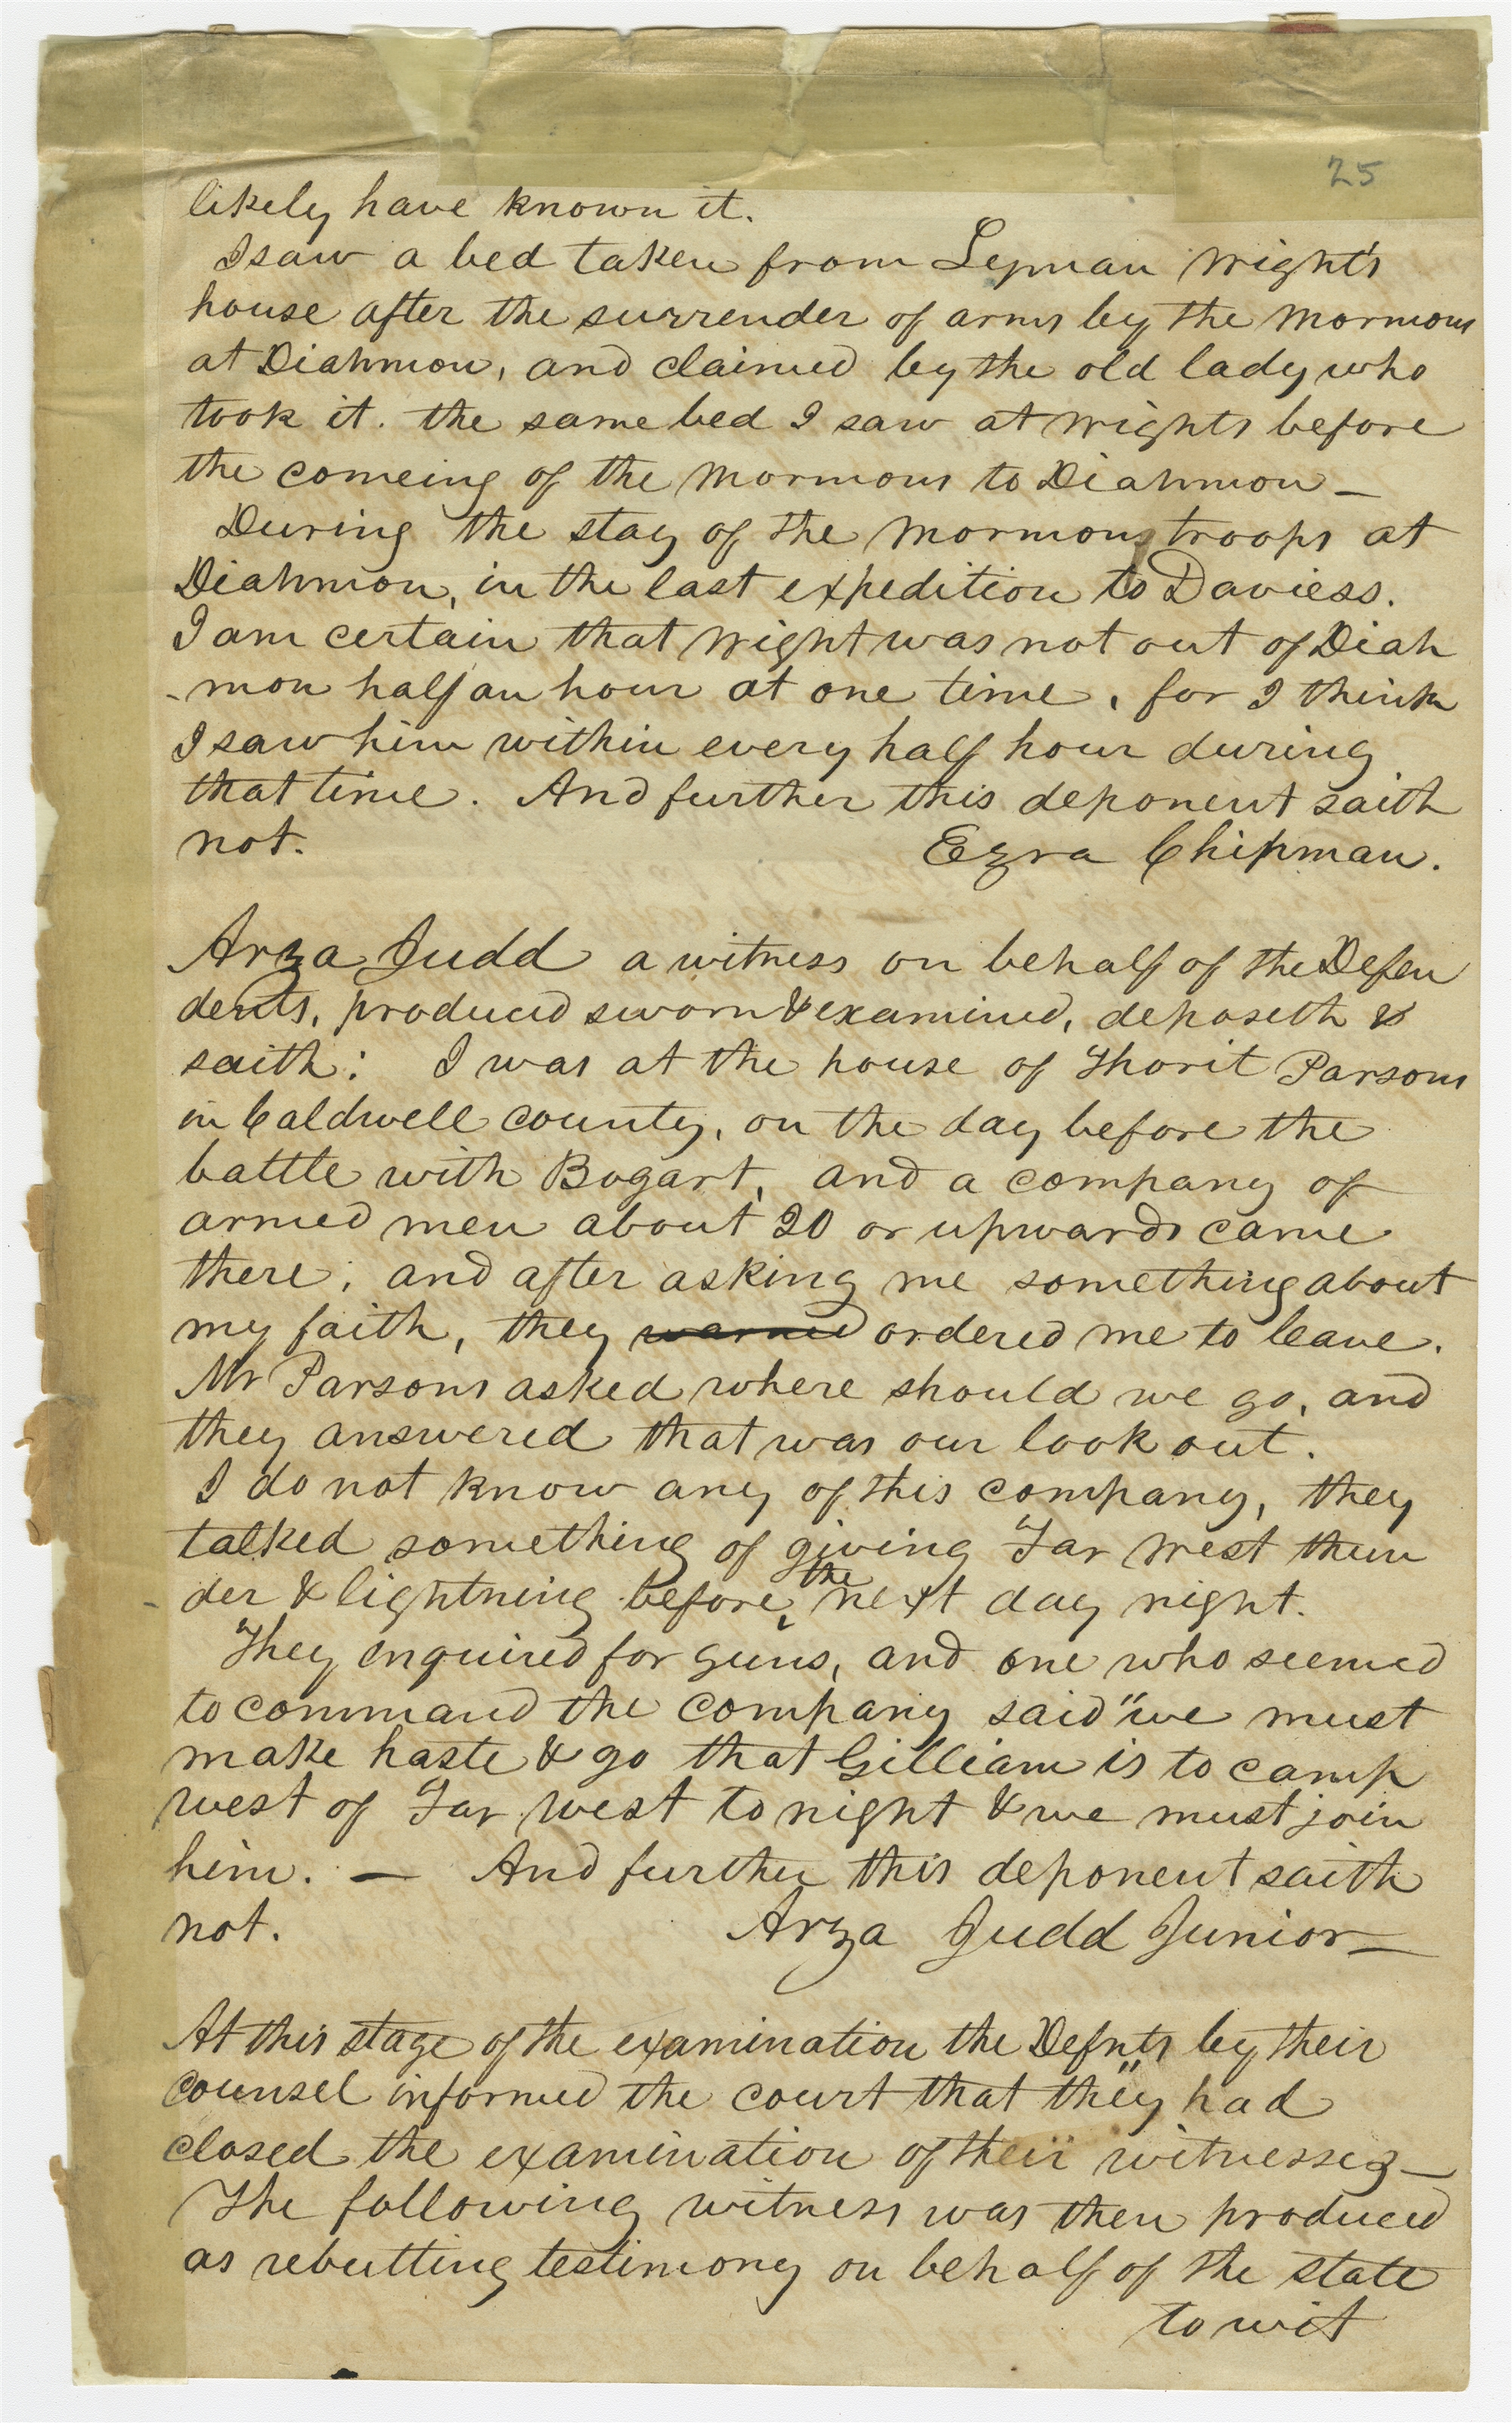 25
likely have known it.
I saw a bed taken from Lyman Wight's
house after the surrender of arms by the Mormons
at Diahmon, and claimed by the old lady who
took it. the same bed I saw at Wights before
the comeing of the Mormons to Diahmon –
During the stay of the Mormons troops at
Diahmon, in the last expedition to Daviess.
I am certain that Wight was not out of Diah
-mon half an hour at one time, for I think
I saw him within every half hour during
that time. And further this deponent saith
not. Ezra Chipman.
Arza Judd a witness on behalf of the Defen
dents, produced sworn & examined, deposeth &
saith: I was at the house of Thorit Parsons
in Caldwell county, on the day before the
battle with Bogart, and a company of
armed men about 20 or upwards came
there; and after asking me something about
my faith, they warned ordered me to leave.
Mr Parsons asked where should we go, and
they answered that was our look out.
I do not know any of this company, they
talked something of giving Far West thun
der & lightning before the next day night.
They enquired for guns, and one who seemed
to command the company said "we must
make haste & go that Gilliam is to camp
west of Far West to night & we must join
him. — And further this deponent saith
not. Arza Judd Junior –
At this stage of the examination the Defnts by their
counsel informed the court that they had
closed the examination of their witnesses –
The following witness was then produced
as rebutting testimony on behalf of the state
to wit